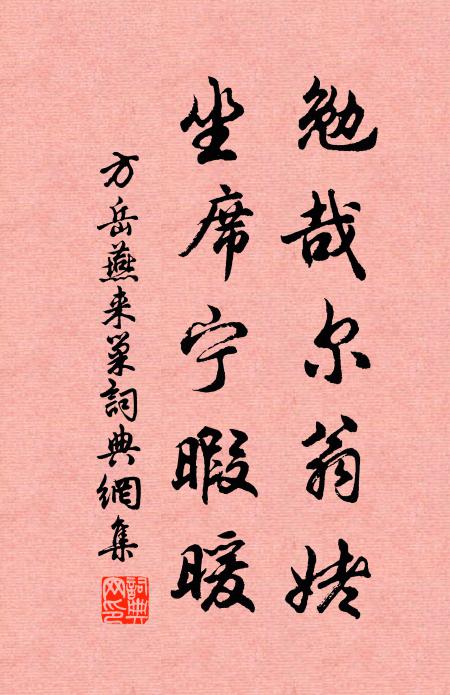 勉哉尔翁姥
坐席宁暇暖
方岳燕来巢詞典網集
詞典网印